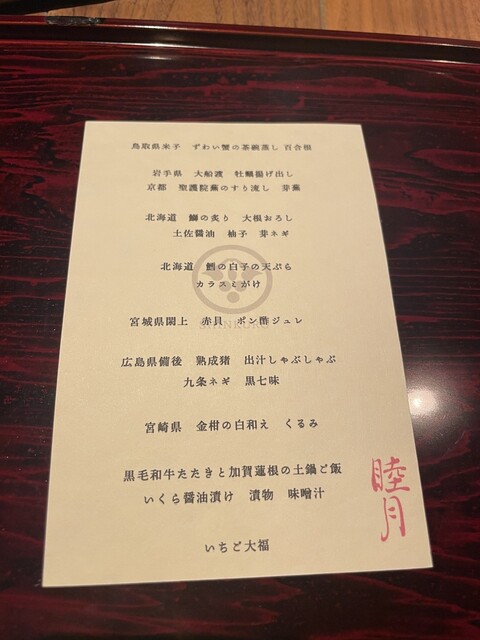 鳥取県米子　ずわい蟹の茶碗蒸し 百合根
岩手県　大船渡　牡蠣揚げ出し
京都　聖護院蕪のすり流し　芽蕪
北海道　鰤の炙り　大根おろし
土佐醤油　柚子　芽ネギ
北海道　鱈の白子の天ぷら
カラスミがけ
宮城県閖上　赤貝　ポン酢ジュレ
広島県備後　熟成猪　出汁しゃぶしゃぶ
九条ネギ　黒七味
宮崎県　金柑の白和え　くるみ
黒毛和牛たたきと加賀蓮根の土鍋ご飯
いくら醤油漬け　漬物　味噌汁
いちご大福
睦月